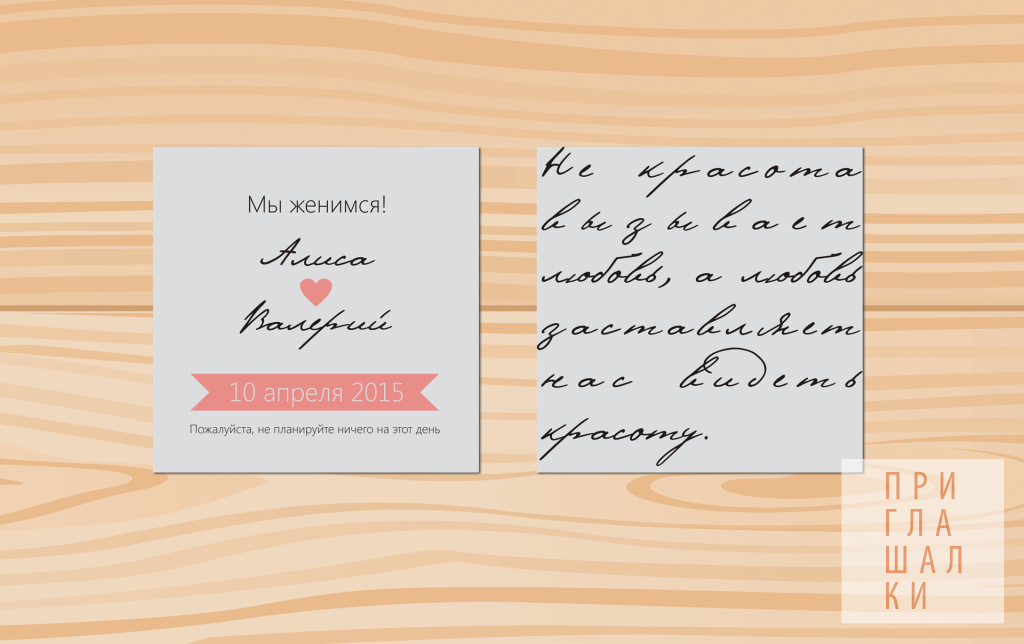 Мы женимся!
Алиса
Валерий
10 апреля 2015
Пожалуйста, не планируйте ничего на этот день
Не красота
вызывает
любовь, а любовь
заставляет
нас видеть
красоту.
ПРИ
ГЛА
ШАЛ
КИ